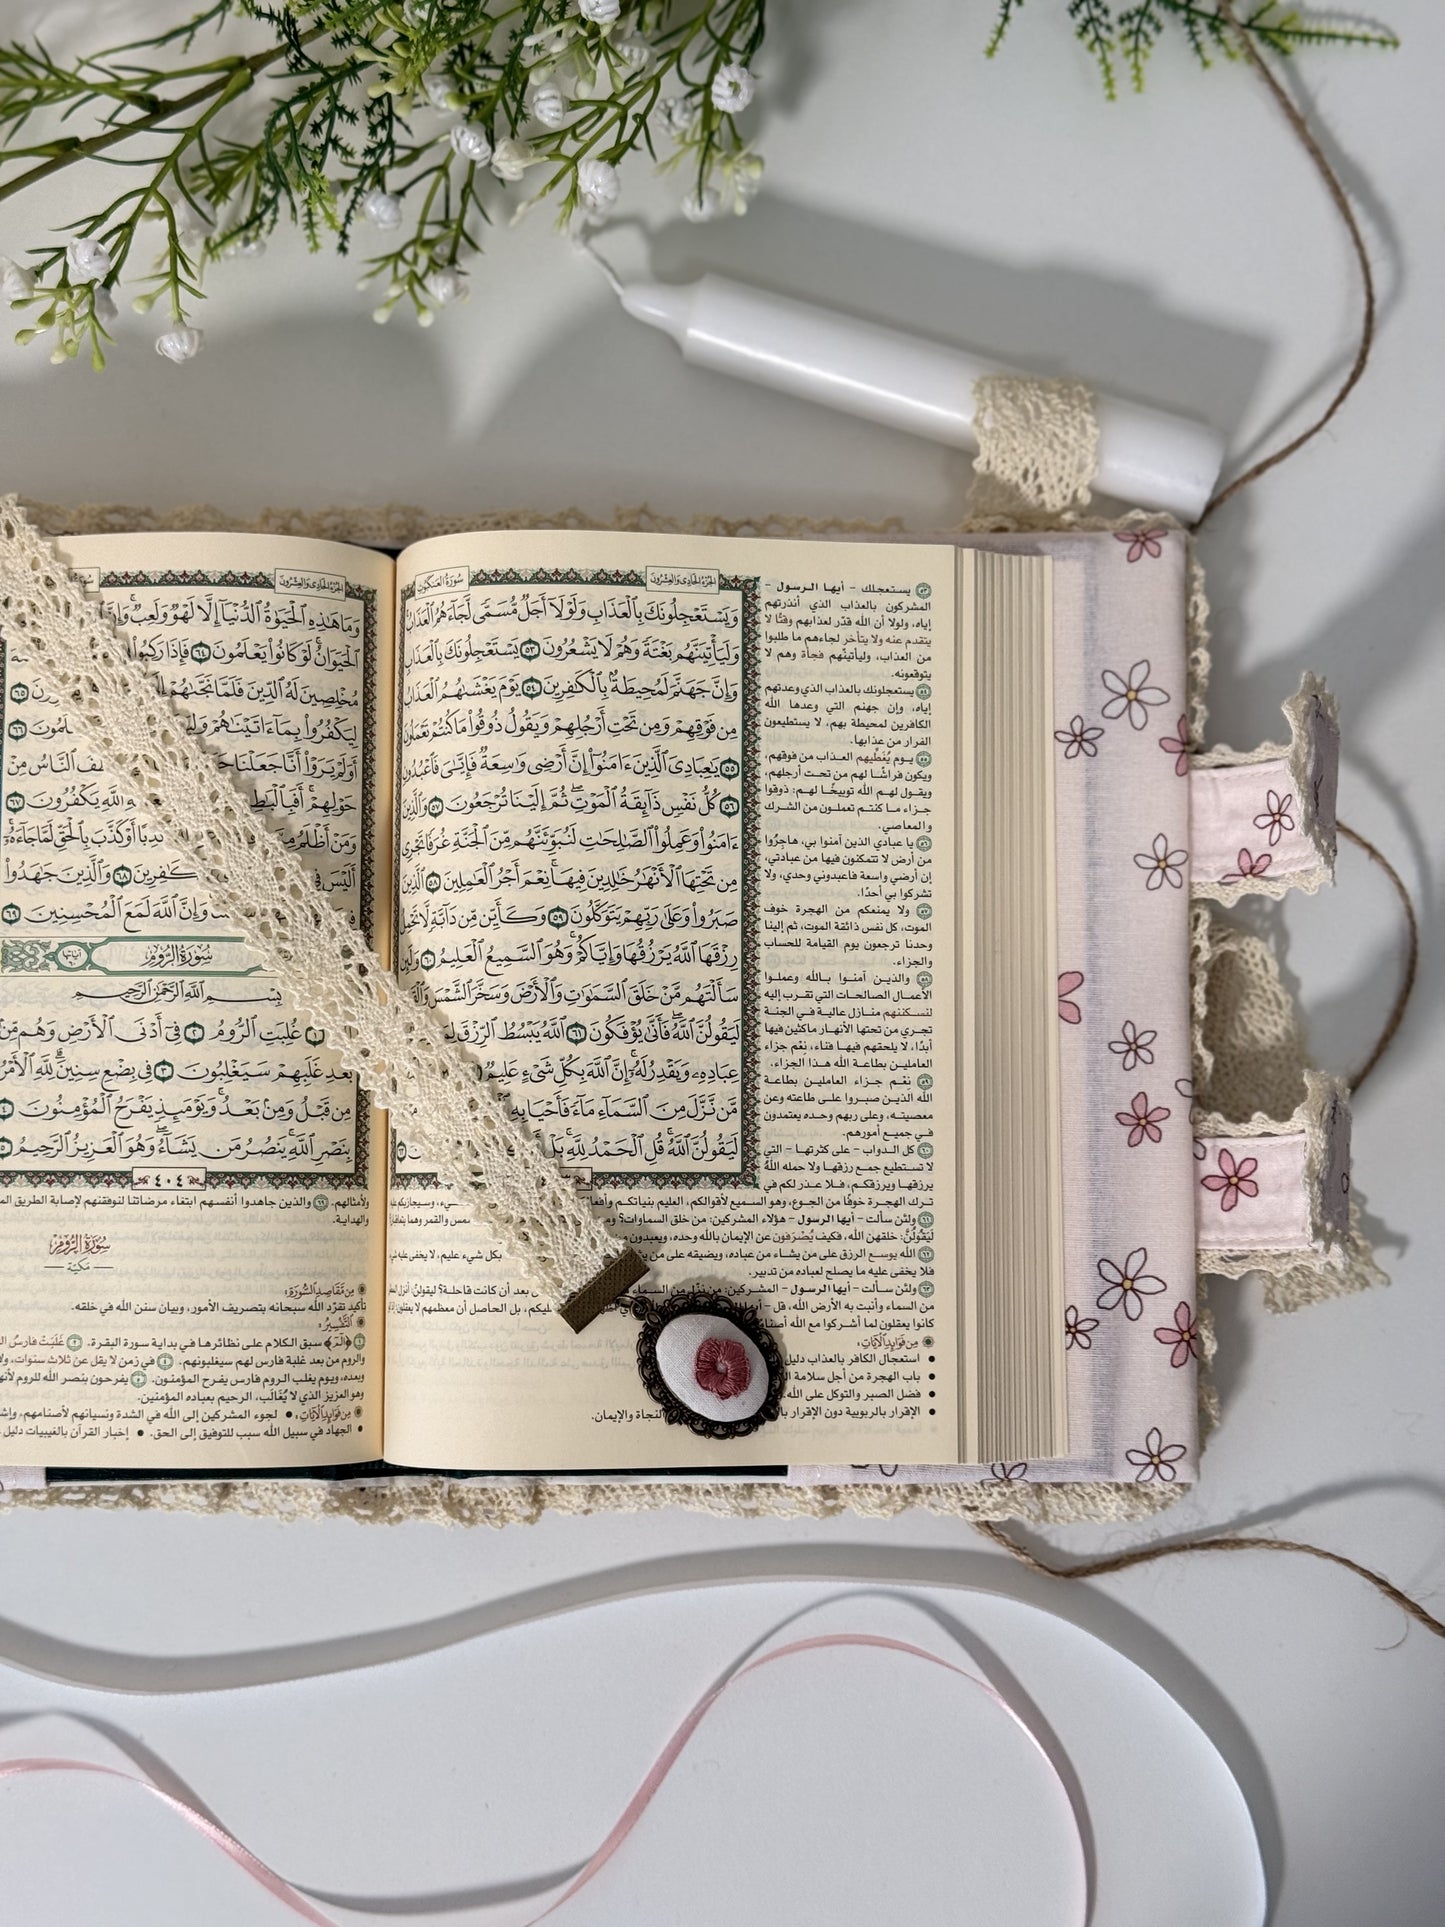 الجزء الحادي والعشرون
سورة العنكبوت
وَيَسْتَعْجِلُونَكَ بِٱلْعَذَابِ وَلَوْلَآ أَجَلٌ مُّسَمًّى لَّجَآءَهُمُ ٱلْعَذَابُ
وَلَيَأْتِيَنَّهُم بَغْتَةً وَهُمْ لَا يَشْعُرُونَ ٥٣ يَسْتَعْجِلُونَكَ بِٱلْعَذَابِ
وَإِنَّ جَهَنَّمَ لَمُحِيطَةٌۢ بِٱلْكَٰفِرِينَ ٥٤ يَوْمَ يَغْشَىٰهُمُ ٱلْعَذَابُ
مِن فَوْقِهِمْ وَمِن تَحْتِ أَرْجُلِهِمْ وَيَقُولُ ذُوقُوا۟ مَا كُنتُمْ تَعْمَلُونَ
٥٥ يَٰعِبَادِىَ ٱلَّذِينَ ءَامَنُوٓا۟ إِنَّ أَرْضِى وَٰسِعَةٌ فَإِيَّٰىَ فَٱعْبُدُونِ
٥٦ كُلُّ نَفْسٍ ذَآئِقَةُ ٱلْمَوْتِ ثُمَّ إِلَيْنَا تُرْجَعُونَ ٥٧ وَٱلَّذِينَ
ءَامَنُوا۟ وَعَمِلُوا۟ ٱلصَّٰلِحَٰتِ لَنُبَوِّئَنَّهُم مِّنَ ٱلْجَنَّةِ غُرَفًا تَجْرِى
مِن تَحْتِهَا ٱلْأَنْهَٰرُ خَٰلِدِينَ فِيهَا نِعْمَ أَجْرُ ٱلْعَٰمِلِينَ ٥٨ ٱلَّذِينَ
صَبَرُوا۟ وَعَلَىٰ رَبِّهِمْ يَتَوَكَّلُونَ ٥٩ وَكَأَيِّن مِّن دَآبَّةٍ لَّا تَحْمِلُ
رِزْقَهَا ٱللَّهُ يَرْزُقُهَا وَإِيَّاكُمْ وَهُوَ ٱلسَّمِيعُ ٱلْعَلِيمُ ٦٠ وَلَئِن
سَأَلْتَهُم مَّنْ خَلَقَ ٱلسَّمَٰوَٰتِ وَٱلْأَرْضَ وَسَخَّرَ ٱلشَّمْسَ
لَيَقُولُنَّ ٱللَّهُ فَأَنَّىٰ يُؤْفَكُونَ ٦١ ٱللَّهُ يَبْسُطُ ٱلرِّزْقَ
عِبَادِهِۦ وَيَقْدِرُ لَهُۥٓ إِنَّ ٱللَّهَ بِكُلِّ شَىْءٍ عَلِيمٌ
مَّن نَّزَّلَ مِنَ ٱلسَّمَآءِ مَآءً فَأَحْيَا بِهِ
لَيَقُولُنَّ ٱللَّهُ قُلِ ٱلْحَمْدُ لِلَّهِ بَلْ
٥٣ يستعجلك - أيها الرسول -
المشركون بالعذاب الذي أنذرتهم
إياه، ولولا أن الله قدّر لعذابهم وقتًا لا
يتقدم عنه ولا يتأخر لجاءهم ما طلبوا
من العذاب، وليأتينّهم فجأة وهم لا
يتوقعونه.
٥٤ يستعجلونك بالعذاب الذي وعدتهم
إياه، وإن جهنم التي وعدها الله
الكافرين لمحيطة بهم، لا يستطيعون
الفرار من عذابها.
٥٥ يوم يُغَطِّيهم العذاب من فوقهم،
ويكون فراشًا لهم من تحت أرجلهم،
ويقول لهم الله توبيخًا لهم: ذوقوا
جزاء ما كنتم تعملون من الشرك
والمعاصي.
٥٦ يا عبادي الذين آمنوا بي، هاجِرُوا
من أرض لا تتمكنون فيها من عبادتي،
إن أرضي واسعة فاعبدوني وحدي، ولا
تشركوا بي أحدًا.
٥٧ ولا يمنعكم من الهجرة خوف
الموت، كل نفس ذائقة الموت، ثم إلينا
وحدنا ترجعون يوم القيامة للحساب
والجزاء.
٥٨ والذين آمنوا بالله وعملوا
الأعمال الصالحات التي تقرب إليه
لنسكننهم منازل عالية في الجنة
تجري من تحتها الأنهار ماكثين فيها
أبدًا، لا يلحقهم فيها فناء، نِعْم جزاء
العاملين بطاعة الله هذا الجزاء.
٥٩ نِعْم جزاء العاملين بطاعة
الله الذين صبروا على طاعته وعن
معصيته، وعلى ربهم وحده يعتمدون
في جميع أمورهم.
٦٠ كل الدواب - على كثرتها - التي
لا تستطيع جمع رزقها ولا حمله الله
يرزقها ويرزقكم، فلا عذر لكم في
ترك الهجرة خوفًا من الجوع، وهو السميع لأقوالكم، العليم بنياتكم
٦١ ولئن سألت - أيها الرسول - هؤلاء المشركين: من خلق السماوات؟
لَيَقُولُنَّ: خلقهن الله، فكيف يُصْرَفون عن الإيمان بالله وحده، ويعبدون
٦٢ الله يوسع الرزق على من يشاء من عباده، ويضيقه على من بكل شيء عليم، لا يخفى عليه
فلا يخفى عليه ما يصلح لعباده من تدبير.
٦٣ ولئن سألت - أيها الرسول - المشركين: من نزّل من السماء بعد أن كانت قاحلة؟ ليقولنّ: أنزل
من السماء وأنبت به الأرض الله، قل - أيها بل الحاصل أن معظمهم لا
كانوا يعقلون لما أشركوا مع الله
من فوائد الآيات:
• استعجال الكافر بالعذاب دليل
• باب الهجرة من أجل سلامة
• فضل الصبر والتوكل على الله.
• الإقرار بالربوبية دون الإقرار النجاة والإيمان.
الجزء الحادي والعشرون
وَمَا هَٰذِهِ ٱلْحَيَوٰةُ ٱلدُّنْيَآ إِلَّا لَهْوٌ وَلَعِبٌ
ٱلْحَيَوَانُ لَوْ كَانُوا۟ يَعْلَمُونَ ٦٤ فَإِذَا رَكِبُوا۟
مُخْلِصِينَ لَهُ ٱلدِّينَ فَلَمَّا نَجَّىٰهُمْ ٦٥
لِيَكْفُرُوا۟ بِمَآ ءَاتَيْنَٰهُمْ ٦٦
أَوَلَمْ يَرَوْا۟ أَنَّا جَعَلْنَا ٱلنَّاسُ مِنْ
حَوْلِهِمْ يَكْفُرُونَ ٦٧
وَمَنْ أَظْلَمُ أَوْ كَذَّبَ بِٱلْحَقِّ لَمَّا جَآءَهُۥٓ
أَلَيْسَ ٦٨ وَٱلَّذِينَ جَٰهَدُوا۟
وَإِنَّ ٱللَّهَ لَمَعَ ٱلْمُحْسِنِينَ ٦٩
سورة الروم
آياتها ٦٠
بِسْمِ ٱللَّهِ ٱلرَّحْمَٰنِ ٱلرَّحِيمِ
غُلِبَتِ ٱلرُّومُ ٢ فِىٓ أَدْنَى ٱلْأَرْضِ وَهُم مِّنۢ
بَعْدِ غَلَبِهِمْ سَيَغْلِبُونَ ٣ فِى بِضْعِ سِنِينَ لِلَّهِ ٱلْأَمْرُ
مِن قَبْلُ وَمِنۢ بَعْدُ وَيَوْمَئِذٍ يَفْرَحُ ٱلْمُؤْمِنُونَ ٤
بِنَصْرِ ٱللَّهِ يَنصُرُ مَن يَشَآءُ وَهُوَ ٱلْعَزِيزُ ٱلرَّحِيمُ ٥
٤٠٤
ولأمثالهم. ٦٩ والذين جاهدوا أنفسهم ابتغاء مرضاتنا لنوفقنهم لإصابة الطريق
والهداية.
سورة الروم
مكية
من مقاصد السورة:
تأكيد تفرّد الله سبحانه بتصريف الأمور، وبيان سنن الله في خلقه.
التفسير:
١ ﴿الٓمٓ﴾ سبق الكلام على نظائرها في بداية سورة البقرة. ٢ غَلَبَتْ فارس
والروم من بعد غلبة فارس لهم سيغلبونهم. ٤ في زمن لا يقل عن ثلاث سنوات،
وبعده، ويوم يغلب الروم فارس يفرح المؤمنون. ٥ يفرحون بنصر الله للروم
وهو العزيز الذي لا يُغَالَب، الرحيم بعباده المؤمنين.
من فوائد الآيات: • لجوء المشركين إلى الله في الشدة ونسيانهم لأصنامهم،
• الجهاد في سبيل الله سبب للتوفيق إلى الحق. • إخبار القرآن بالغيبيات دليل